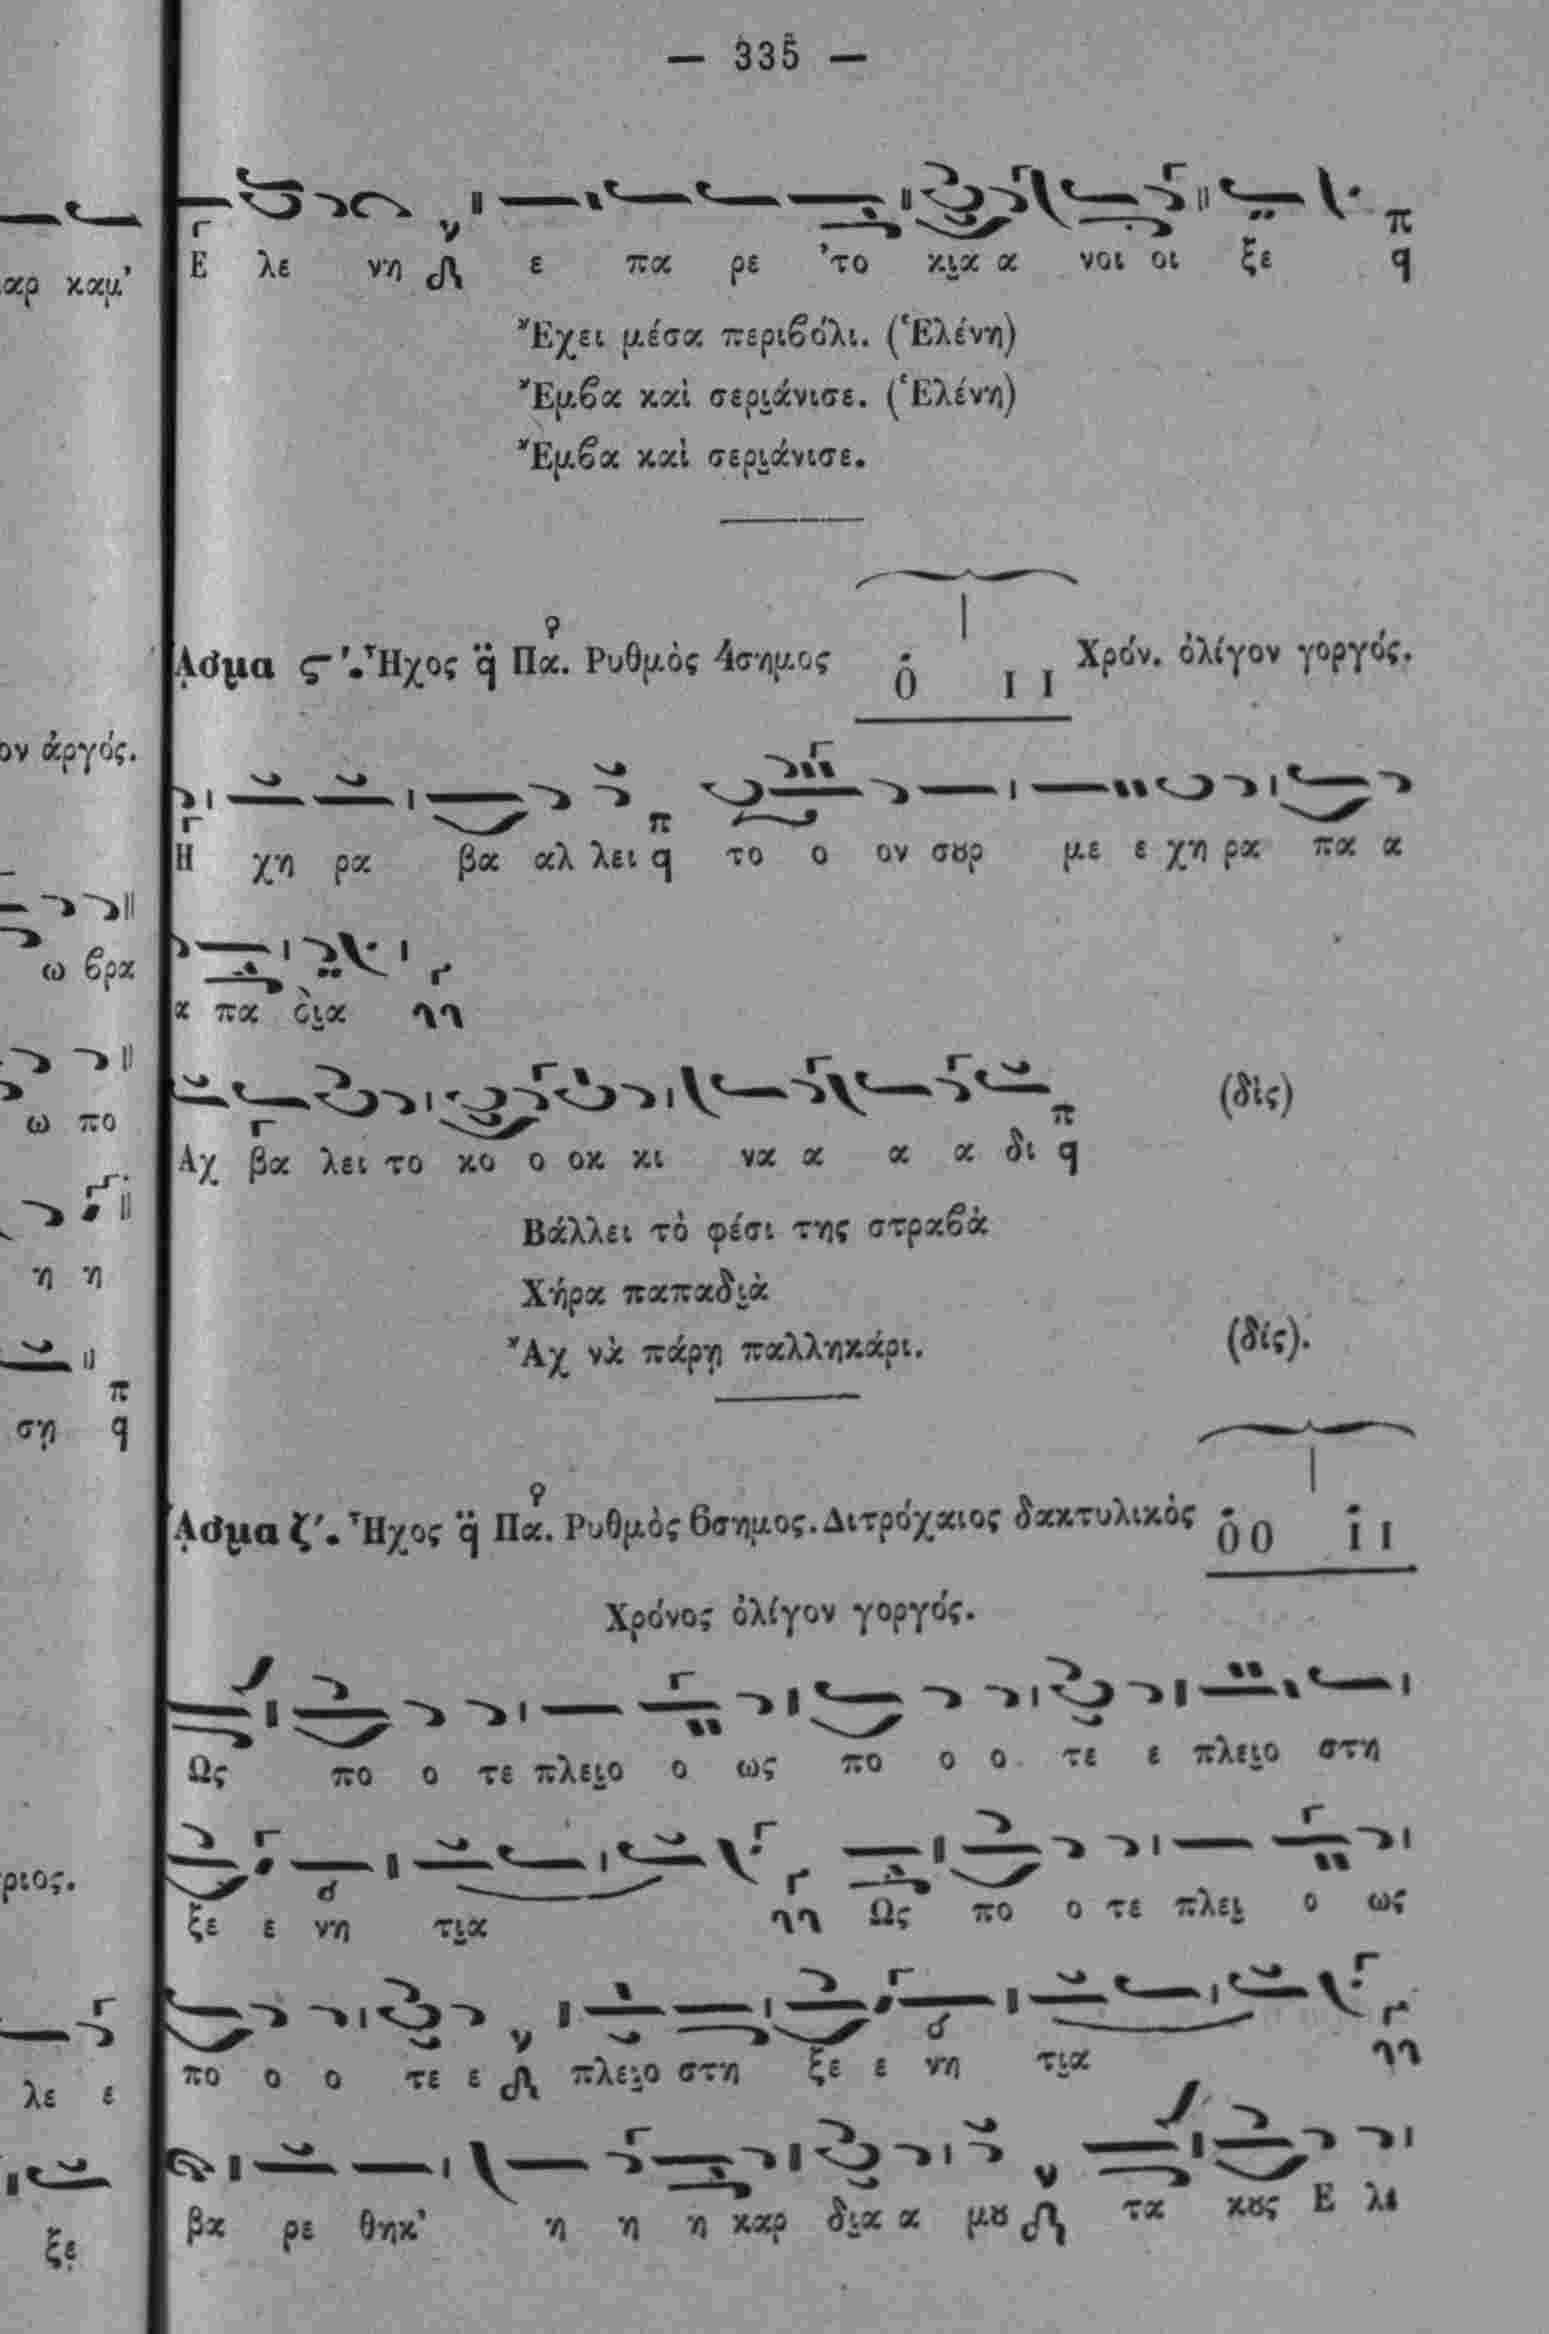 — 335 —
Ε λε νη ε πα ρε 'το κι̮α α νοι οι ξε π q
Ἔχει μέσα περιβόλι. (Ἑλένη)
Ἔμβα καὶ σερι̮άνισε. (Ἑλένη)
Ἔμβα καὶ σερι̮άνισε.
ᾎσμα ς΄. Ἦχος q̈ Πα. Ρυθμὸς 4σημος Ο Ι Ι Χρόν. ὀλίγον γοργός.
Η χη ρα βα αλ λει q το ο ον σȣρ με ε χη ρα πα α
α πα δι̮α
Αχ βα λει το κο ο οκ κι να α α α δι q (δὶς)
Βάλλει τὸ φέσι της στραβὰ
Χήρα παπαδι̮ὰ
Ἄχ νὰ πάρῃ παλληκάρι. (δίς).
ᾎσμα ζ΄. Ἦχος q̈ Πα. Ρυθμὸς 6σημος. Διτρόχαιος δακτυλικὸς Ο Ο Ι Ι
Χρόνος ὀλίγον γοργός.
Ως πο ο τε πλει̮ο ο ως πο ο ο τε ε πλει̮ο στη
ξε ε νη τι̮α Ως πο ο τε πλει̮ ο ως
πο ο ο τε ε πλει̮ο στη ξε ε νη τι̮α
βα ρε θηκ' η η η καρ δι̮α α μȣ τα κȣς Ε λε
αρ καμ'
ον ἀργός.
ω βρα
ω πο
η η
σῃ q
ριος.
λε ε
ξε